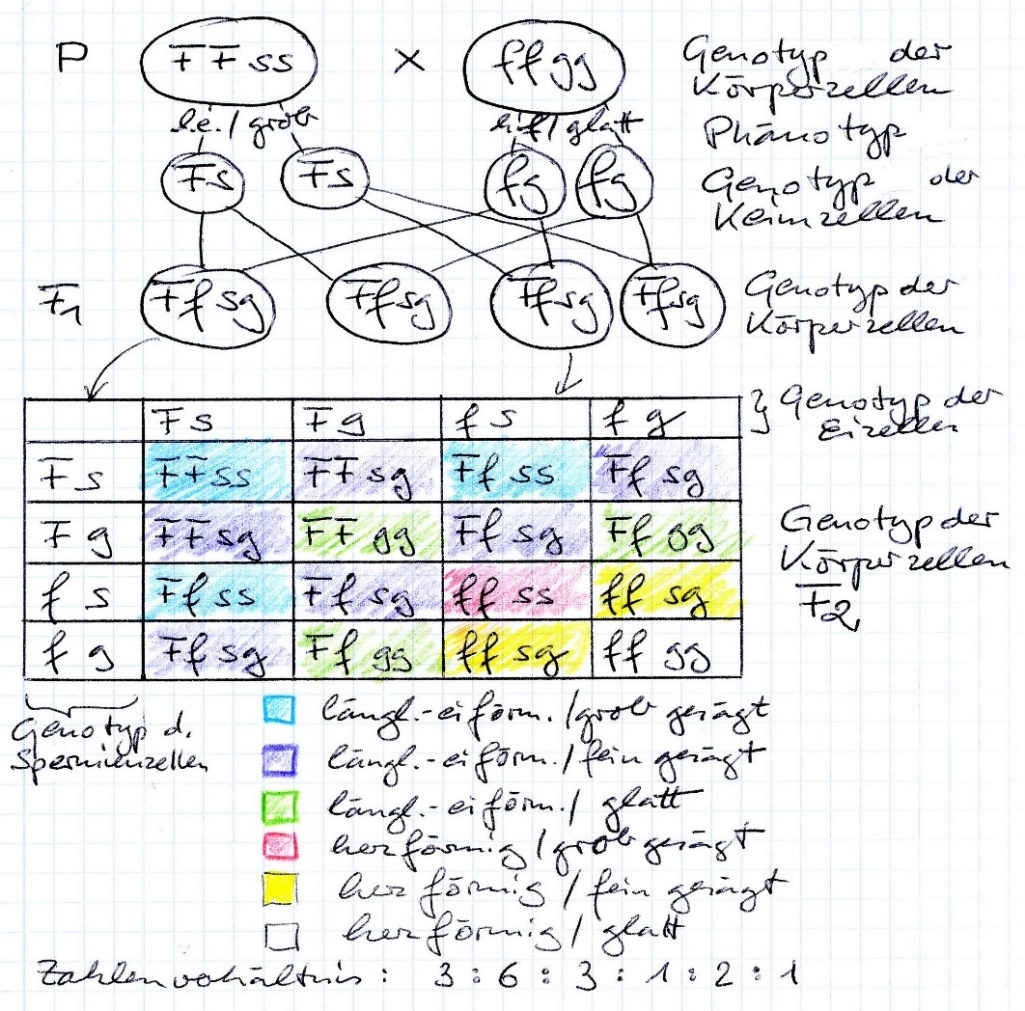 P FFss × ffgg Genotyp der
Körperzellen
l.e./grob hf/glatt Phänotyp
Fs Fs fg fg Genotyp der
Keimzellen
F1 Ffsg Ffsg Ffsg Ffsg Genotyp der
Körperzellen
Fs Fg fs fg } Genotyp der
Eizellen
Fs FFss FFsg Ffss Ffsg
Fg FFsg FFgg Ffsg Ffgg Genotyp der
Körperzellen
fs Ffss Ffsg ffss ffsg F2
fg Ffsg Ffgg ffsg ffgg
Genotyp d.
Spermienzellen
längl.-eiförm./grob gesägt
längl.-eiförm./fein gesägt
längl.-eiförm./glatt
herzförmig/grob gesägt
herzförmig/fein gesägt
herzförmig/glatt
Zahlenverhältnis: 3 : 6 : 3 : 1 : 2 : 1